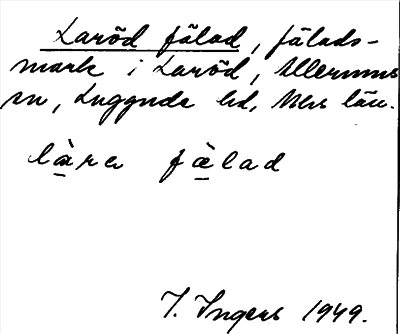 Laröd fälad, fälads-
mark i Laröd, Allerums
sn, Luggude hd, Mlhs län.
làre fàlad
I. Ingers 1949.